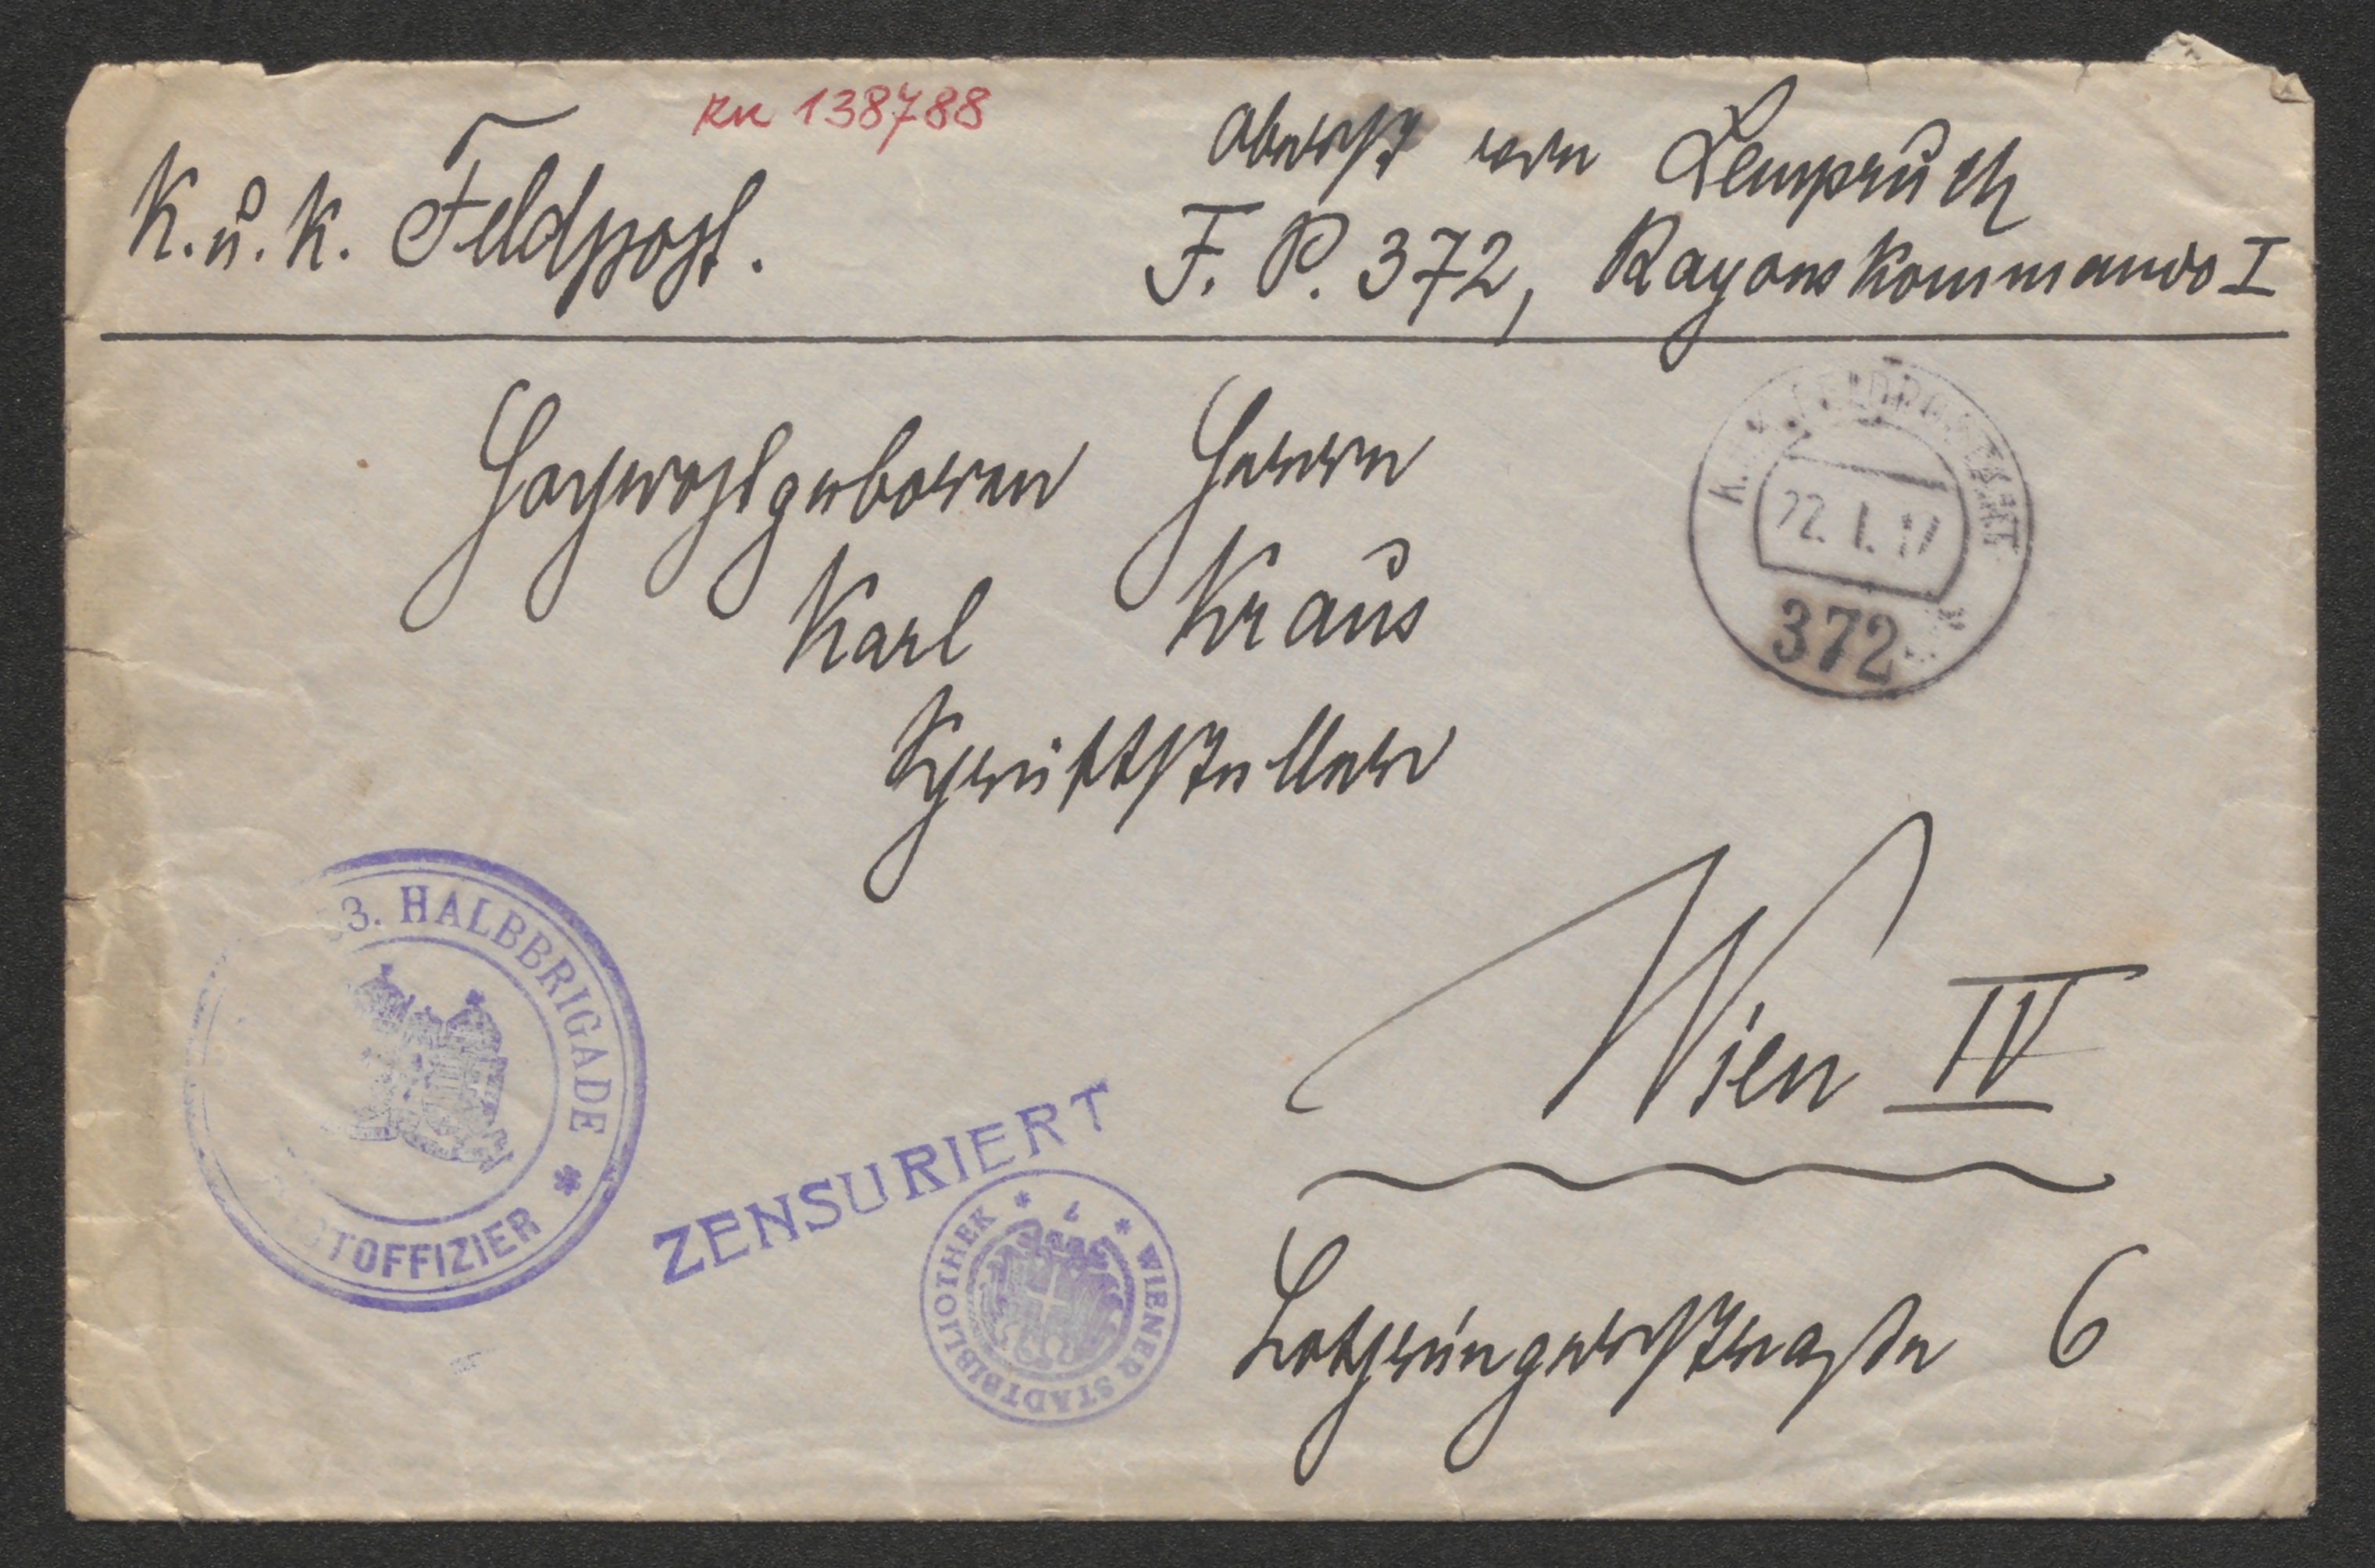 IN 138788
K. u. K. Feldpost.
Oberst von Lempruch
F. P. 372, Rayonskommando I
K. u. K. FELDPOSTAMT
22. I. 17
372
Hochwohlgeboren Herrn
Karl Kraus
Schriftsteller
Wien IV
Lothringerstraße 6
53. HALBBRIGADE
OFFIZIER
ZENSURIERT
WIENER STADTBIBLIOTHEK